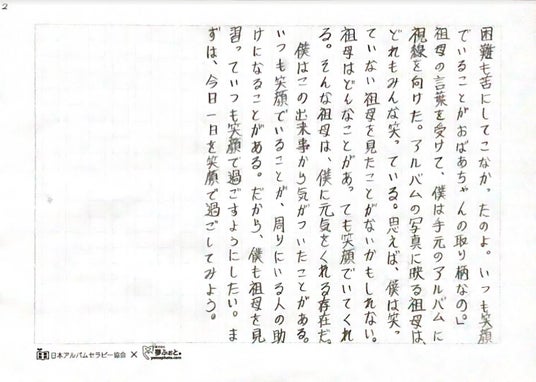 2
困難も苦にしてこなかったのよ。いつも笑顔
でいることがおばあちゃんの取り柄なの。」
祖母の言葉を受けて、僕は手元のアルバムに
視線を向けた。アルバムの写真に映る祖母は、
どれもみんな笑っている。思えば、僕は笑っ
ていない祖母を見たことがないかもしれない。
祖母はどんなことがあっても笑顔でいてくれ
る。そんな祖母は、僕に元気をくれる存在だ。
僕はこの出来事から気がついたことがある。
いつも笑顔でいることが、周りにいる人の助
けになることがある。だから、僕も祖母を見
習っていつも笑顔で過ごすようにしたい。ま
ずは、今日一日を笑顔で過ごしてみよう。
日本アルバムセラピー協会 × 夢ふぉと
yumephoto.com